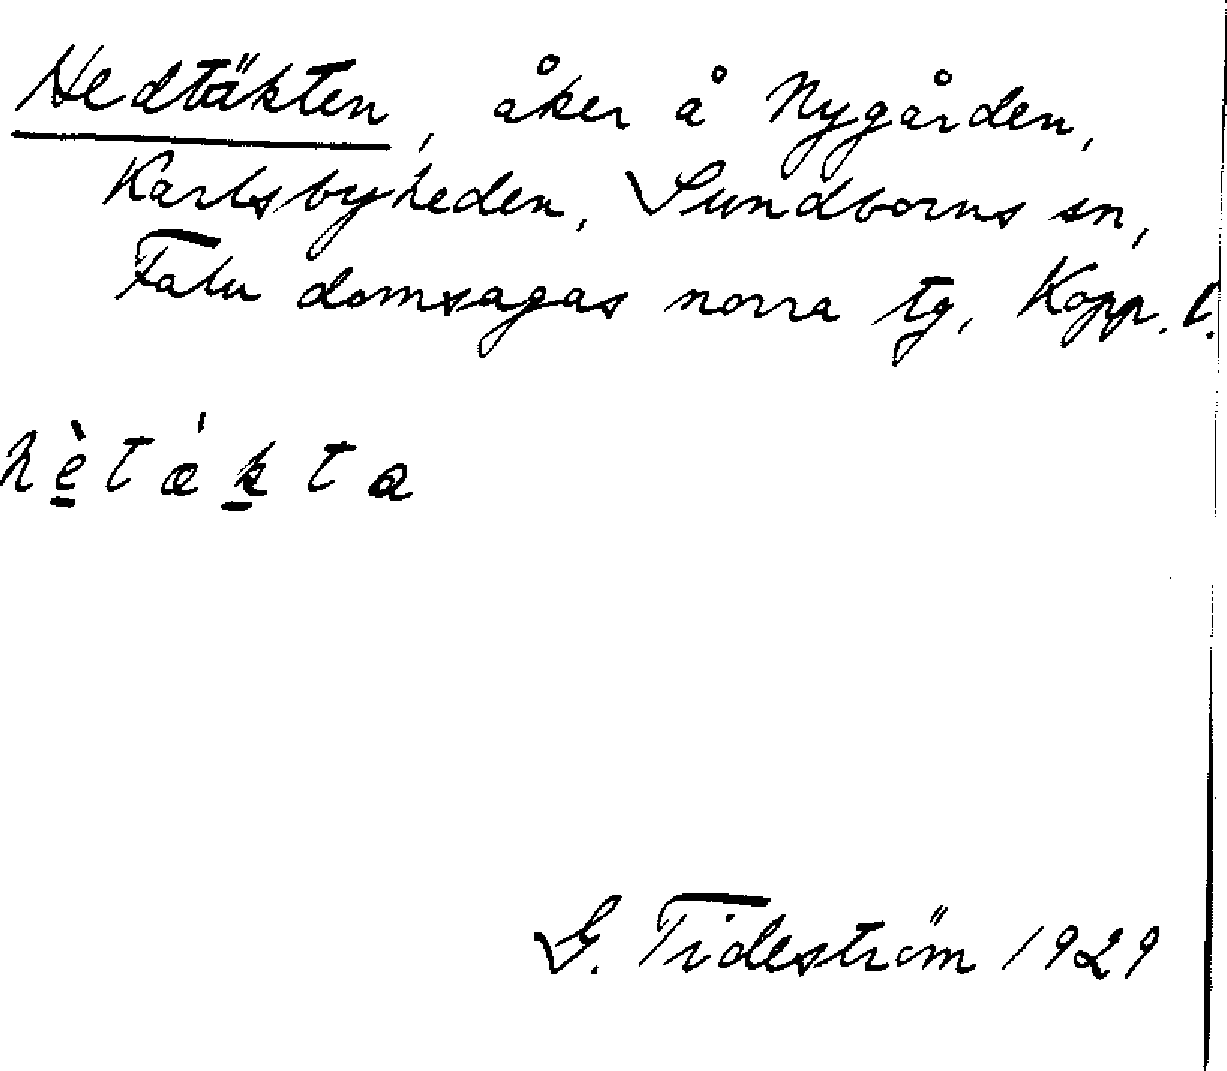 Hedtäkten, åker å Nygården,
Karlsbyheden, Sundborns sn,
Falu domsagas norra tg, Kopp. l.
hè̱tæ̍ḵta
G. Tideström 1929